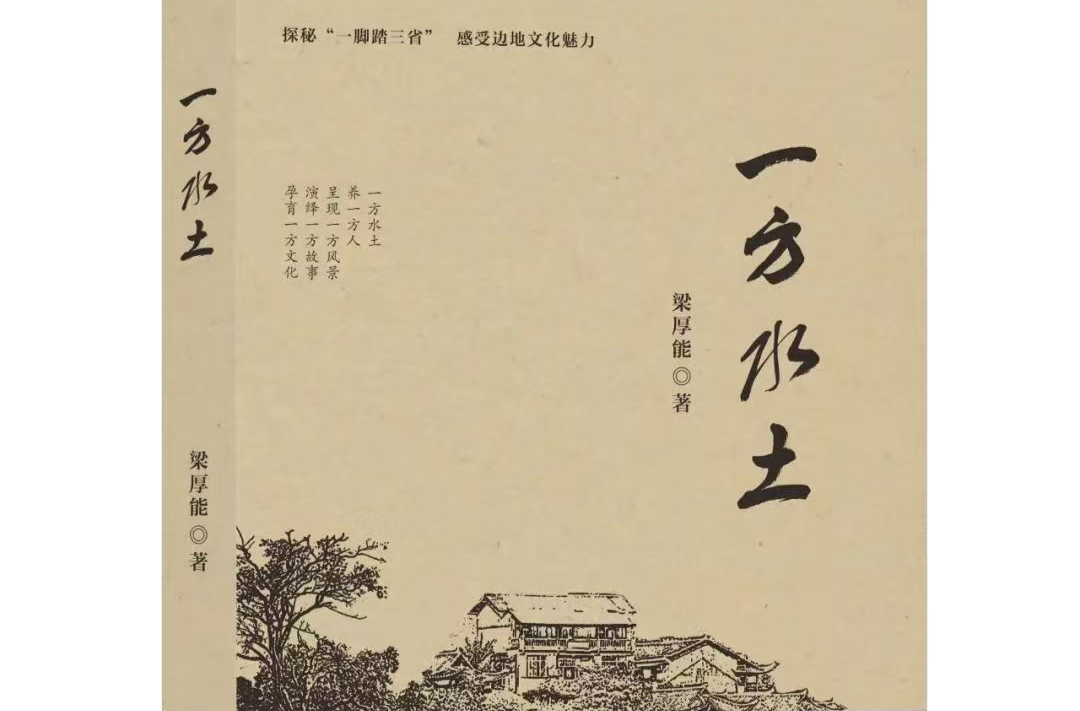 探秘“一脚踏三省” 感受边地文化魅力
一方水土
梁厚能◎著
一方水土
养一方人
呈现一方风景
演绎一方故事
孕育一方文化
一方水土
梁厚能◎著